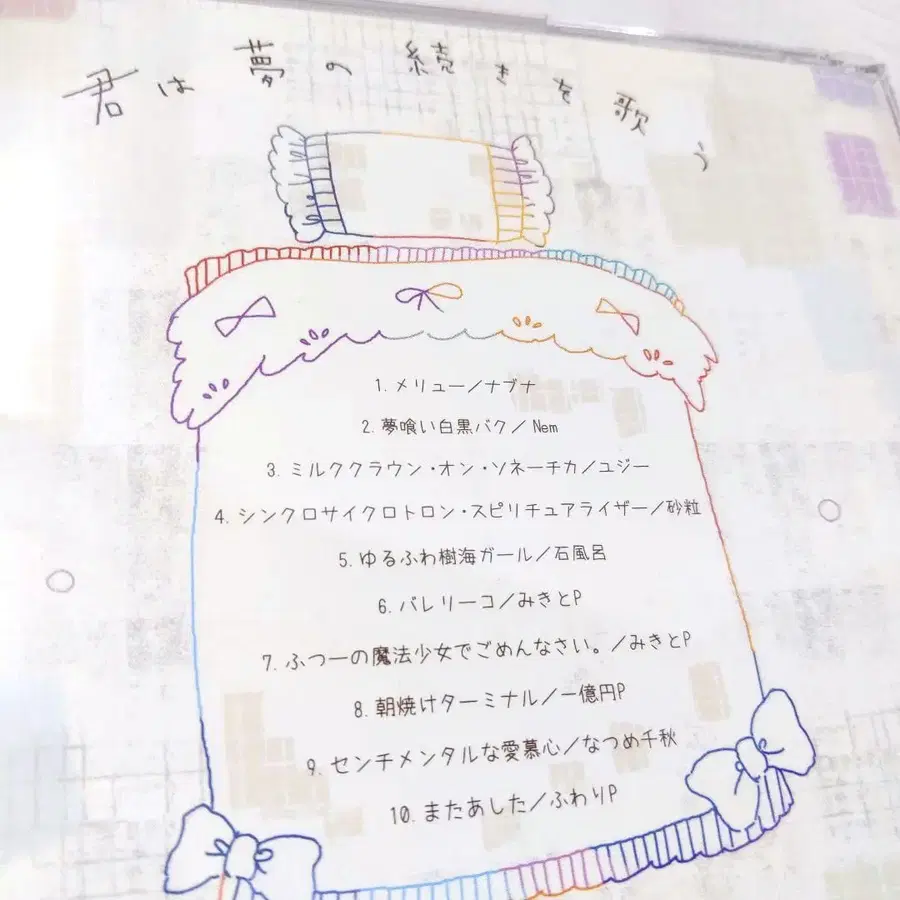 君は夢の続きを歌う
1. メリュー/ナブナ
2. 夢喰い白黒バク/ Nem
3. ミルククラウン・オン・ソネーチカ/ユジー
4. シンクロサイクロトロン・スピリチュアライザー/砂粒
5. ゆるふわ樹海ガール/石風呂
6. バレリーコ/みきとP
7. ふつーの魔法少女でごめんなさい。/みきとP
8. 朝焼けターミナル/一億円P
9. センチメンタルな愛慕心/なつめ千秋
10. またあした/ふわりP